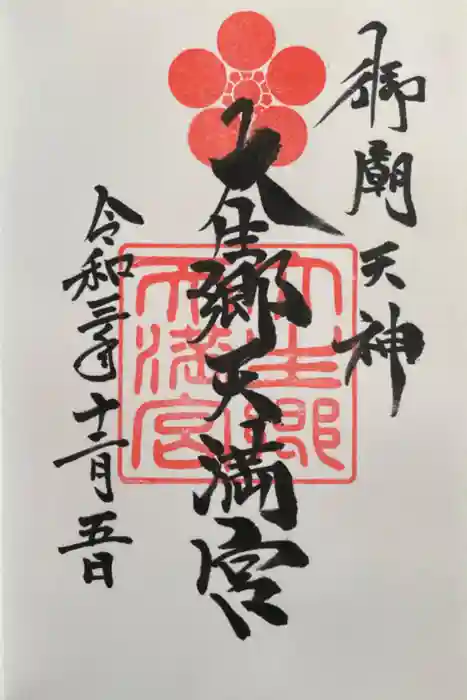 御廟天神
大生郷天満宮
令和三年十二月五日
大生郷
天満宮